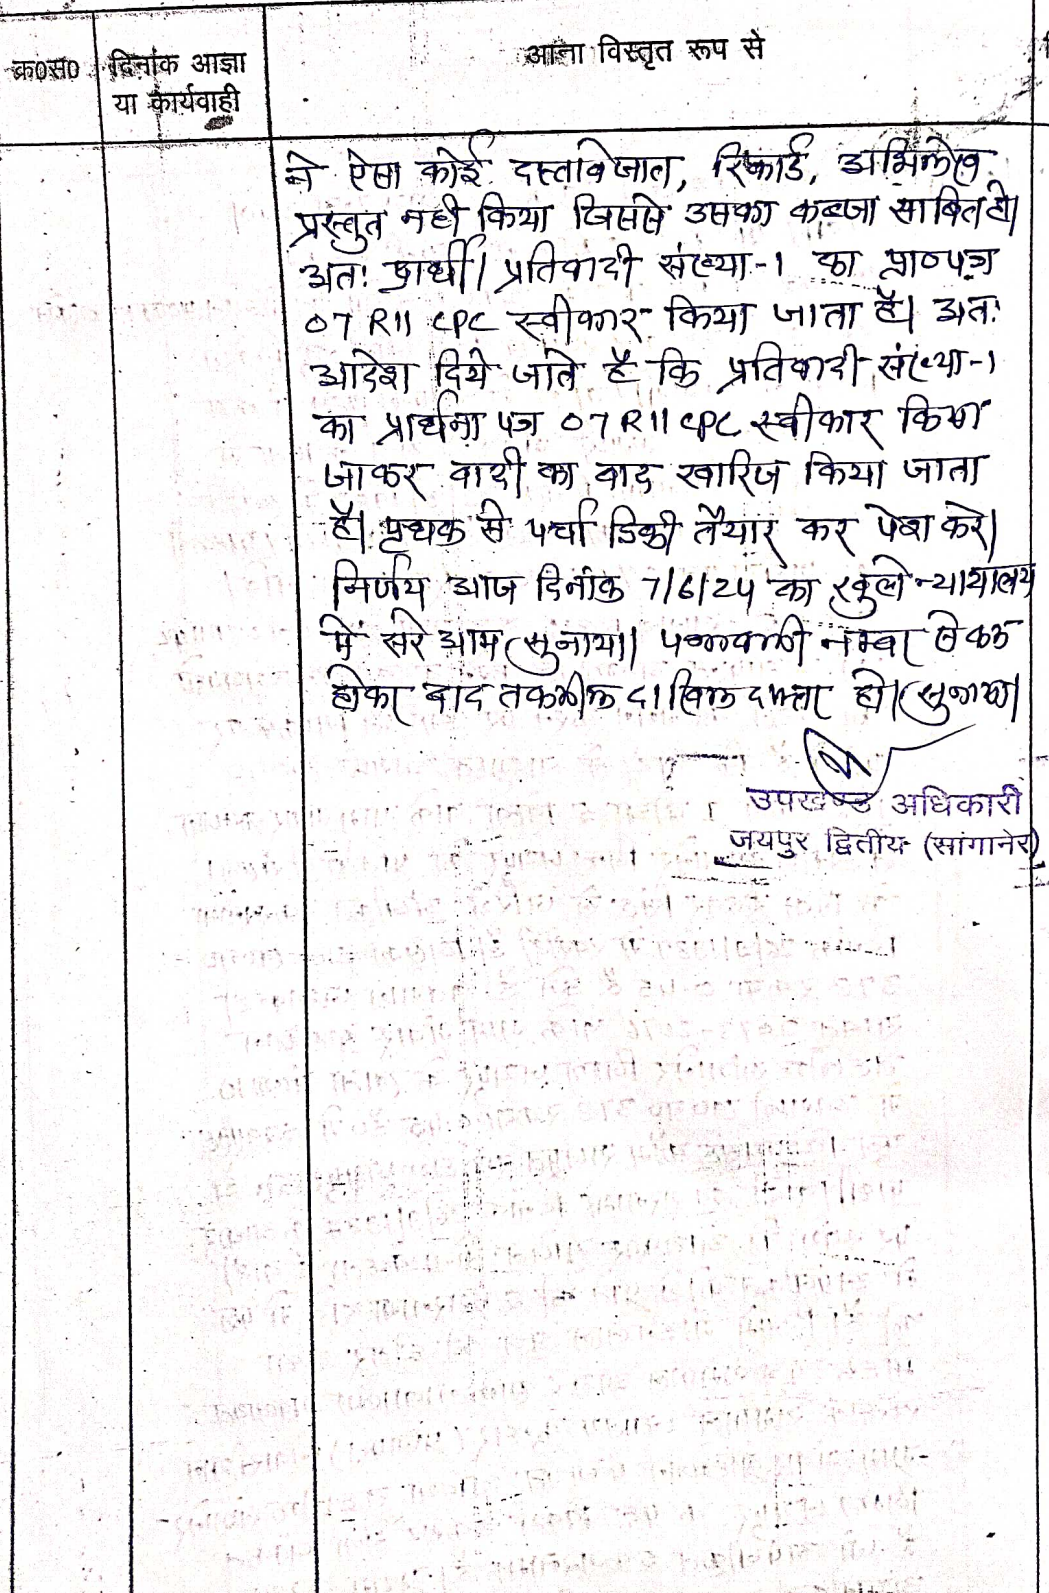 क्र०स०
दिनांक आज्ञा
या कार्यवाही
आज्ञा विस्तृत रूप से
ने ऐसा कोई दस्तावेजात, रिकार्ड, अभिलेख
प्रस्तुत नही किया जिससे उसका कब्जा साबित हो।
अतः प्रार्थी/ प्रतिवादी संख्या-1 का प्रा०पत्र
07 R11 CPC स्वीकार किया जाता है। अतः
आदेश दिये जाते है कि प्रतिवादी संख्या-1
का प्रार्थना पत्र 07 R11 CPC स्वीकार किया
जाकर वादी का वाद खारिज किया जाता
है। पृथक से पर्चा डिक्री तैयार कर पेश करे।
निर्णय आज दिनांक 7/6/24 का खुले न्यायालय
में सरे आम सुनाया। पत्रावली नम्बर से कम
होकर बाद तकमील दाखिल दफ्तर हो।
उपखण्ड अधिकारी
जयपुर द्वितीय (सांगानेर)